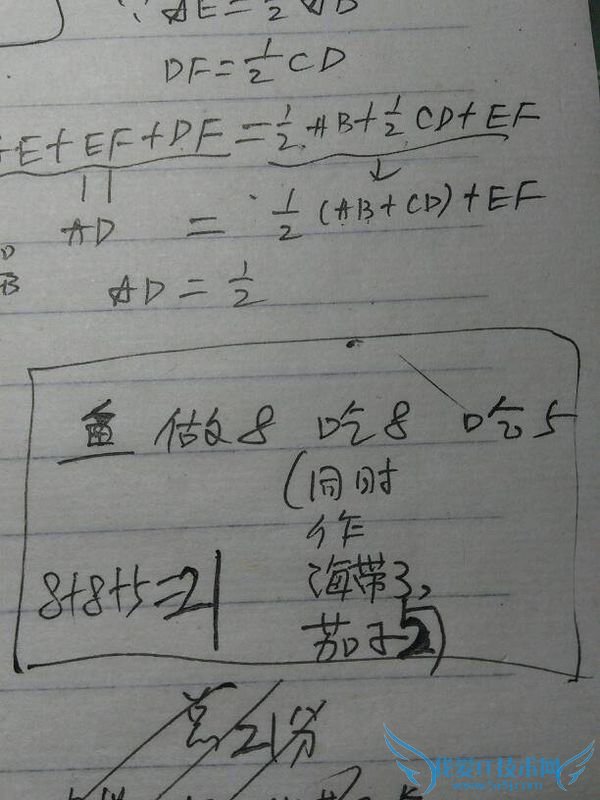 ∵ AE=1/2 AB
DF=1/2 CD
AE+EF+DF=1/2 AB+1/2 CD+EF
AD = 1/2 (AB+CD)+EF
AD=1/2
鱼 做8 吃8 吃5
(同时
作
海带3,
8+8+5=21
茄子5)
总21分